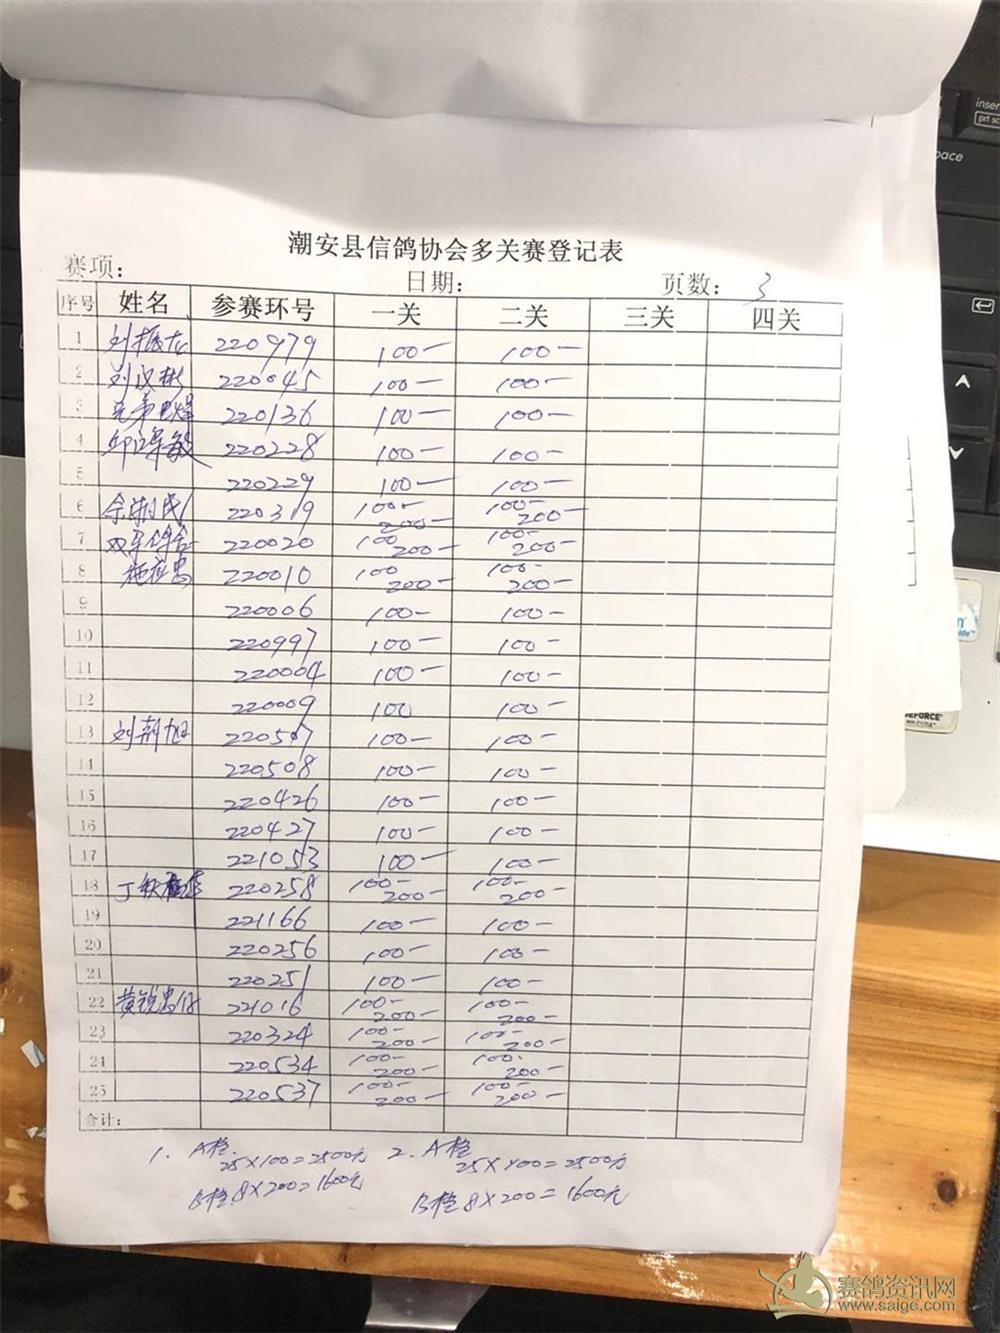 潮安县信鸽协会多关赛登记表
赛项： 日期： 页数：3
序号 姓名 参赛环号 一关 二关 三关 四关
1 刘振龙 220979 100- 100-
2 刘汉彬 220045 100- 100-
3 兄弟 220136 100- 100-
4 敏 220228 100- 100-
5 220229 100- 100-
6 220319 100- 200- 100- 200-
7 220020 100 200- 100- 200-
8 220010 100 200- 100- 200-
9 220006 100- 100-
10 220997 100- 100-
11 220004 100- 100-
12 220009 100 100-
13 刘朝旭 100- 100-
14 220508 100- 100-
15 220426 100- 100-
16 220427 100- 100-
17 221053 100- 100-
18 丁 220258 100- 200- 100- 200-
19 221166 100- 100-
20 220256 100- 100-
21 220251 100- 100-
22 黄锐 221016 100- 200- 100- 200-
23 220324 100- 200- 100- 200-
24 220534 100- 200- 100- 200-
25 220537 100- 200- 100- 200-
合计：
1. A档 2. A档
25×100=2500元 25×100=2500元
B档 8×200=1600元 B档 8×200=1600元
insert
prt sc
pace
GEFORCE
赛鸽资讯网
www.saige.com